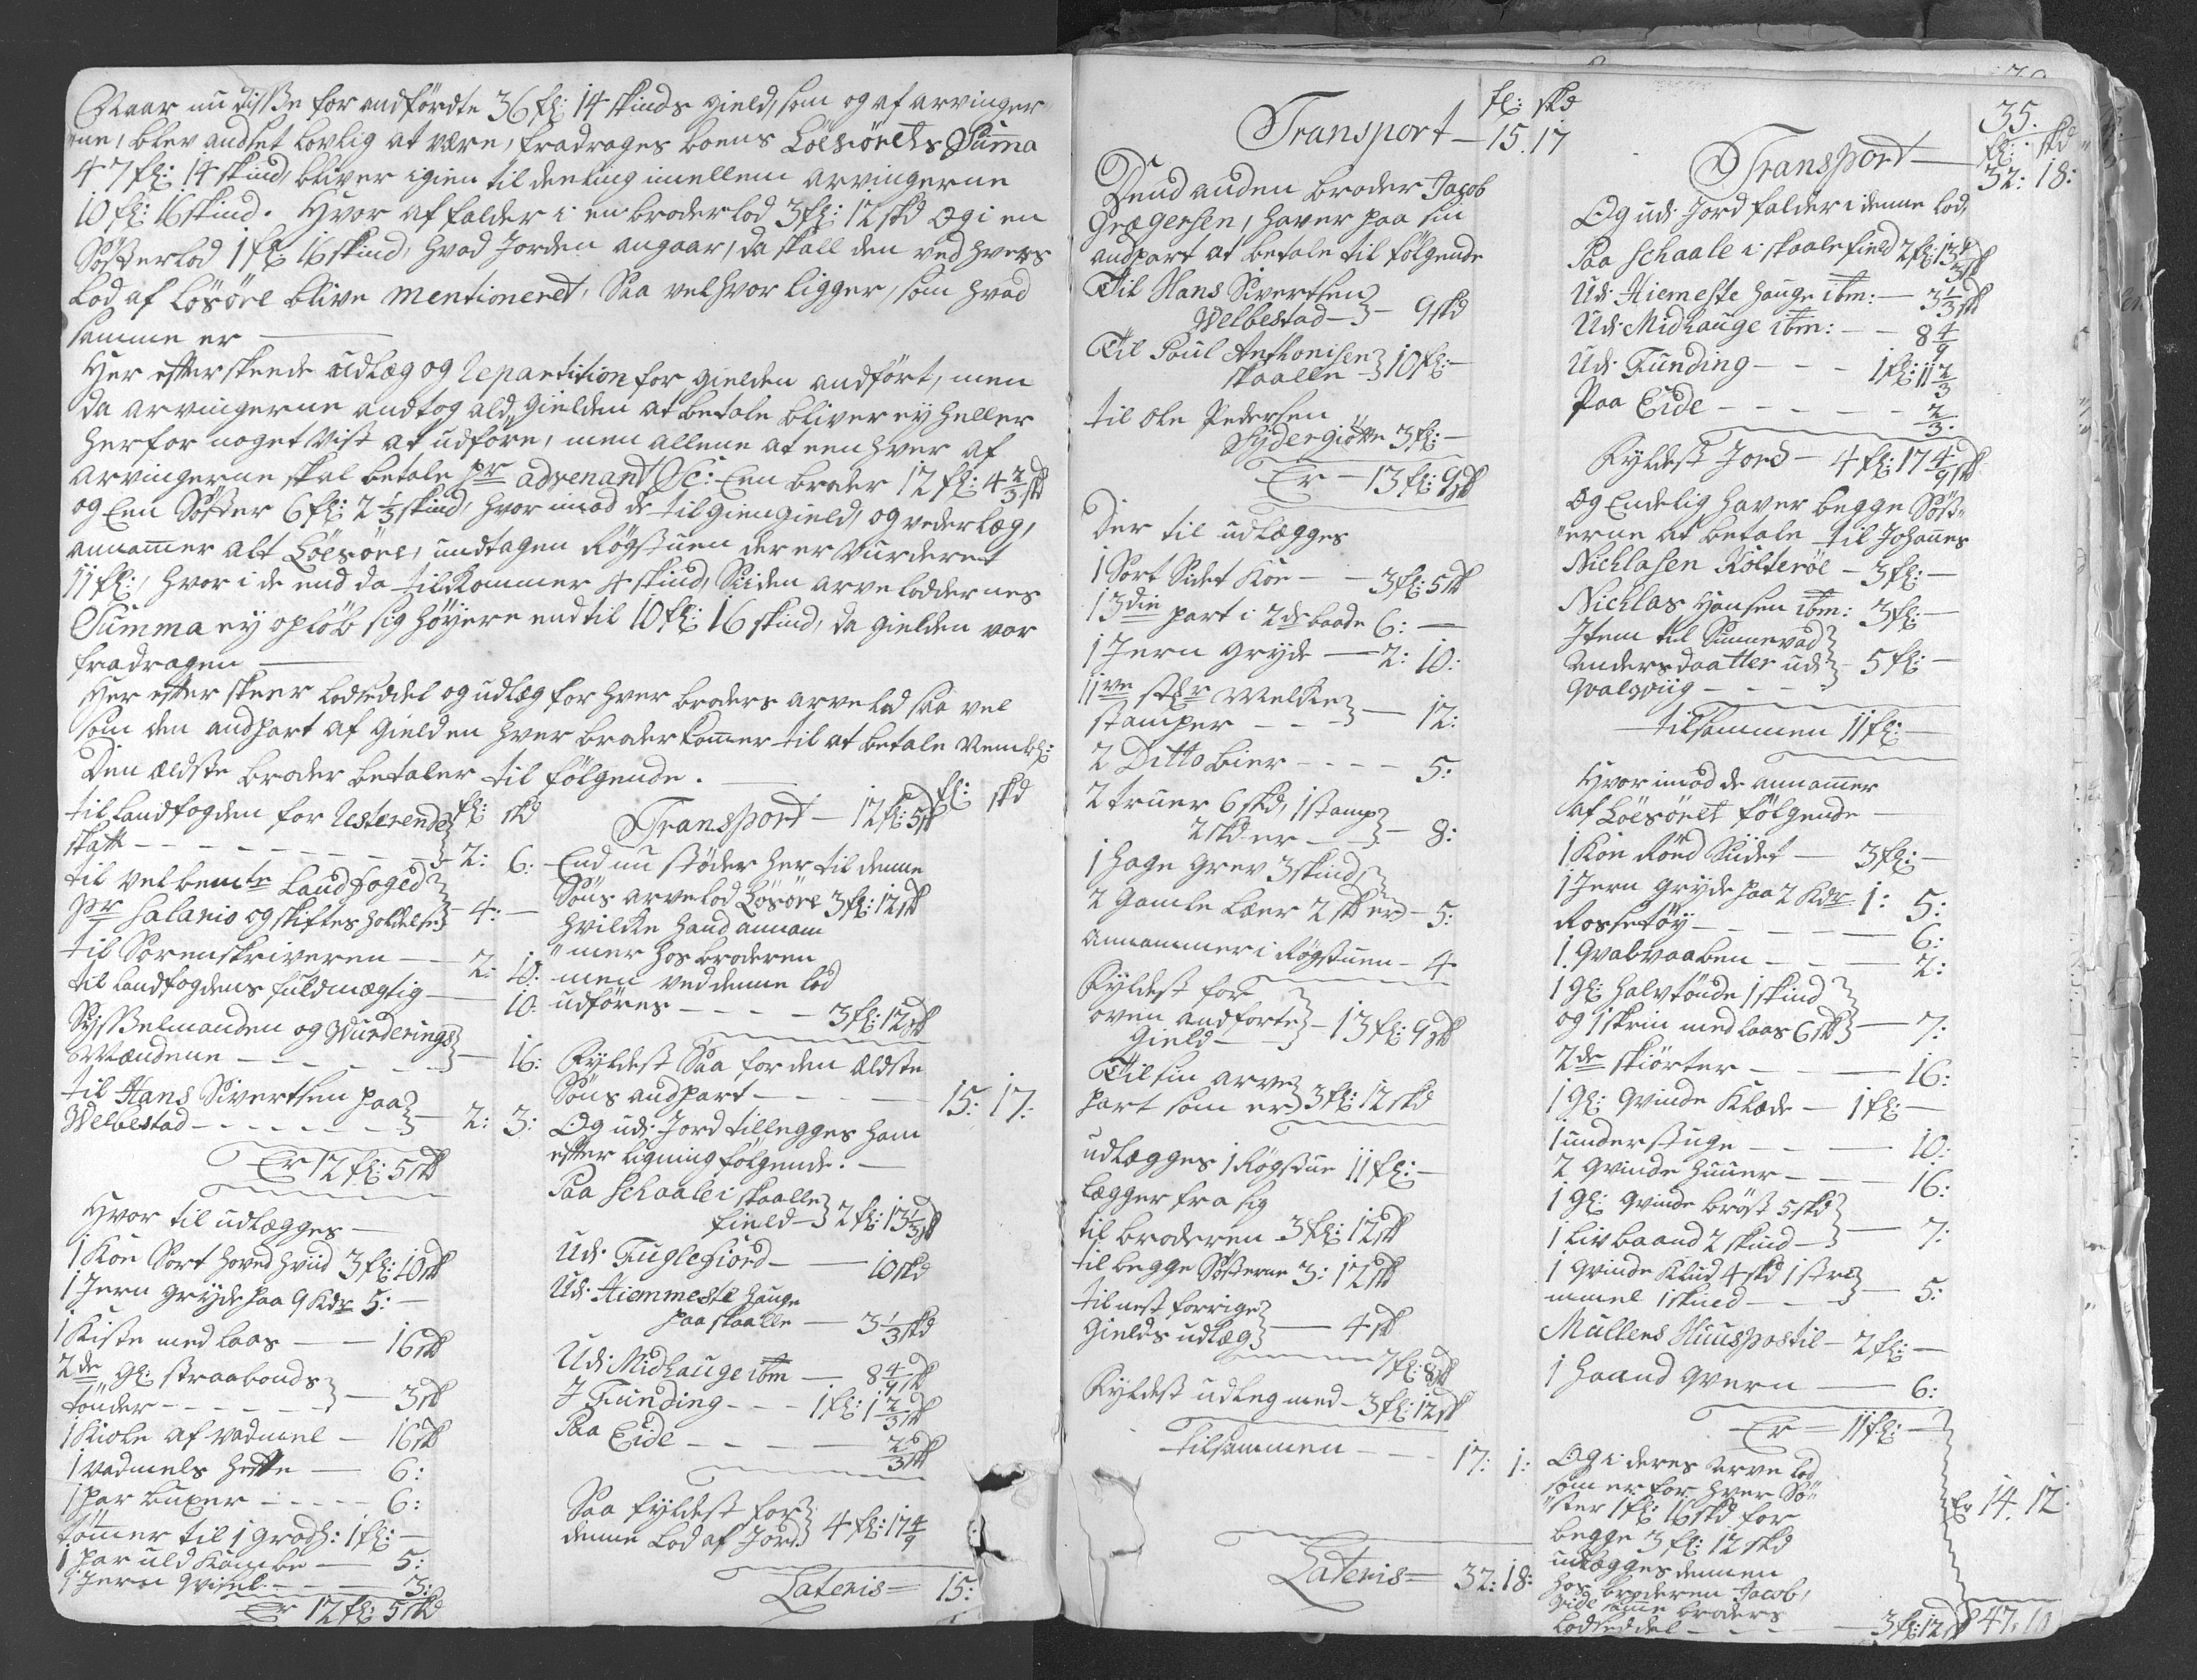 Naar nu disse for andførdte 36 fl: 14 skinds gield, som og af arvinger
"ne, blev andset lovlig at være, fradrages boens Løesørets Suma
47 fl: 14 skind, bliver igien til deeling imellem arvingerne
10 fl: 16 skind. Hvor af falder i en broder lod 3 fl: 12 skd og i en
Søsterlod 1 fl: 16 skind, hvad Jorden angaar, da skall den ved hvers
Lod af Løsøre blive mentioneret, Saa vel hvor ligger, som hvad
samme er
Her efter skeede udlæg og Repartition for gielden andført, men
da arvingerne andtog ald gielden at betale bliver ey heller
herfor noget vist at udføre, men allene at een hver af
arvingerne skal betale pr advenant Sc: Een broder 12 fl: 4 2/3 skd
og Een Søster 6 fl: 2 1/3 skind, hvor imod de til giengield, og vederlæg,
annamer alt Løesøre, undtagen Røgstuen der er Vurderet
11 fl:, hvor i de end da tilkommer 4 skind, Siden arve loddernes
Summa ey opløb sig høyere end til 10 fl: 16 skind, da gielden var
fradragen
Her efter skeer lodseddel og udlæg for hver broders arve lod saa vel
som den andpart af gielden hver broder komer til at betale Nembl:
Den ældste broder betaler til følgende.
fl: skd
til landfogden for Resterende
skatt 2: 6:
til velbemte landfoged
pr Salario og skiftes holdelse 4: –
til Sorenskriveren 2: 10:
til landfogdens fuldmægtig 10:
Sysselmanden og Vurderings
Mændene 16:
til Hans Sivertsen paa
Welbestad 2: 3:
Er 12 fl: 5 skd
Hvor til udlægges
1 Koe Sort hoved hviid 3 fl: 10 skd
1 Jern gryde paa 9 Kdr 5: –
1 Kiste med laas 16 skd
2de gl: straabonds
tønder 3 skd
1 Kiole af vadmel 16 skd
1 vadmels hette 6:
1 par buxer 6:
tømer til 1 grodh: 1 fl: –
1 par uld Kambe 5:
1 Jern 3:
Er 12 fl: 5 skd
fl: skd
Transport – 12 fl: 5 skd
End nu støder her til denne
Søns arve lod Løsøre 3 fl: 12 skd
hvilke hand annam
"mer hos broderen
men ved denne lod
udføres 3 fl: 12 skd
Fyldest Saa for den ældste
Søns andpart 15: 17:
Og udi Jord tillegges ham
efter ligning følgende.
Paa Schaale i skaalle
field 2 fl: 13 1/3 skd
Udi Fuglefiord 10 skd
Udi Hiemmeste hauge
paa skaalle 3 1/3 skd
Udi Midhauge ibm 8 4/9 skd
I Funding 1 fl: 1 2/3 skd
Paa Eide 2/3 skd
Saa fyldest for
denne Lod af Jord 4 fl: 17 4/9
Lateris = 15:
fl: skd
Transport – 15. 17
Dend anden broder Jacob
Grægersen, haver paa sin
andpart at betale til følgende
Til Hans Sivertsen
Welbestad 9 skd
Til Poul Anthonisen
skaalle 10 fl: –
til Ole Pedersen
Sydergiøtte 3 fl: –
Er – 13 fl: 9 skd
Der til udlægges
1 Sort Sidet Koe 3 fl: 5 skd
1 3die part i 2de baade 6: –
1 Jern gryde 2: 10:
Melke
stamper 12:
2 Ditto bier 5:
2 truer 6 skd, 1 stamp
2 skd er 8:
1 hage grev 3 skind,
2 gamle Læer 2 skd er 5:
annammer i Røgstuen 4
Fyldest for
oven andførte
Gield 13 fl: 9 skd
Til sin arve
part som er 3 fl: 12 skd
udlægges 1 Røgstue 11 fl: –
lægger fra sig
til broderen 3 fl: 12 skd
til begge Søsterne 3: 12 skd
til nest forrige
Gields udlæg 4 skd
7 fl: 8 skd
Fyldest udleg med 3 fl: 12 skd
tilsammen 17: 1:
Lateris = 32: 18:
35.
fl: skd
Transport 32: 18:
Og udi Jord falder i denne lod,
Paa Schaale i skaale field 2 fl: 13 1/3 skd
Udi Hiemeste hauge ibm: 3 1/3 skd
Udi Midhauge ibm: 8 4/9
Udi Funding 1 fl: 11 2/3
Paa Eide 2/3.
Fyldest Jord – 4 fl: 17 4/9 skd
Og Endelig haver begge Søst"
"erne at betale til Johanes
Nichlasen Kolterøe – 3 fl: –
Nichlas Hansen ibm: 3 fl: –
Item til Sunnevad
Andersdaatter udi
Qvalviig 5 fl: –
tilsammen 11 fl: –
Hvor imod de annamer
af Løesøret følgende
1 Koe Røed Siidet 3 fl: –
1 Jern gryde paa 2 Kdr 1: 5:
Rossetøy 6:
1 2:
1 gl: halvtønde 1 skind
og 1 skrin med laas 6 skd 7:
2de skiørter 16:
1 gl: Qvinde Klæde 1 fl: –
1 10:
2 Qvinde huuer 16:
1 gl: Qvinde brøst 5 skd
1 Livbaand 2 skind 7:
1 Qvinde Klud 4 skd 1 stre
mmel 1 skind 5:
Mullens Huuspostil 2 fl: –
1 haand Qvern 6:
Er – 11 fl: –
Og i deres arve lod
som er for hver Sø"
"ster 1 fl: 16 skd for
begge 3 fl: 12 skd
udlægges dennem
hos broderen Jacob,
vide same broders
Lodseddel 3 fl: 12 skd
Er 14. 12:
47. 10